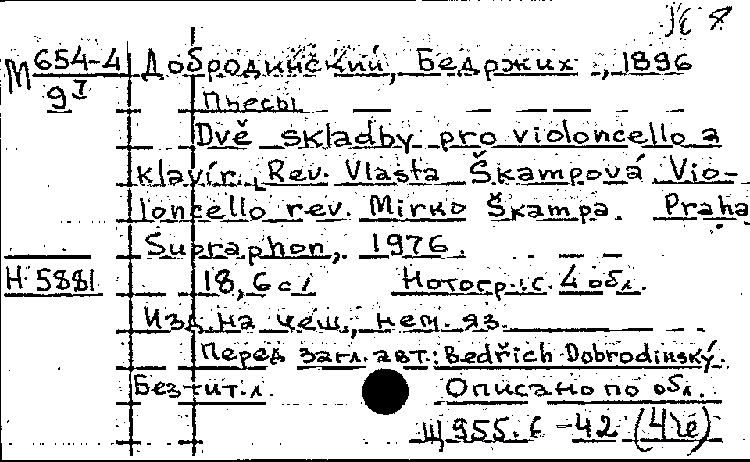 М 654-4 Добродинский, Бедржих, 1896
9 I Пьесы
Dvě skladby pro violoncello a
klavír. Rev. Vlasta Škampová. Vio-
loncello rev. Mirko Škampa. Praha.
Supraphon, 1976.
Н 5881 18, 6 с. Нотогр. с. 4 обл.
Изд. на чеш., нем. яз.
Перед загл. авт.: Bedřich Dobrodinský.
Без тит. л. Описано по обл.
Щ 955.6-42 (4Че)